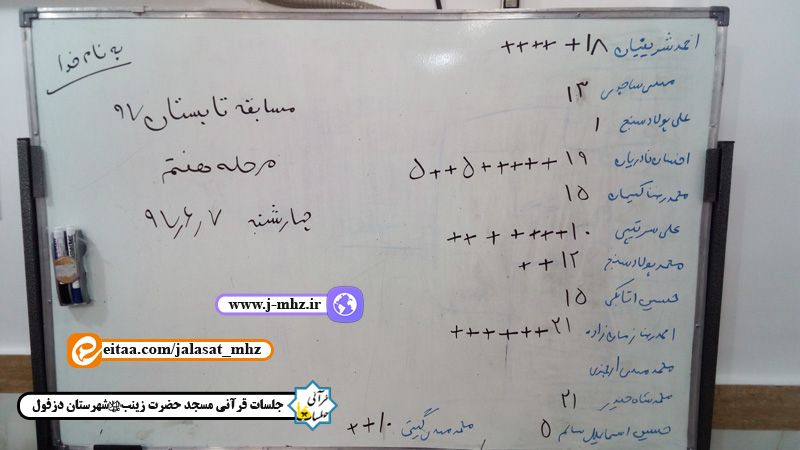 به نام خدا
مسابقه تابستان ۹۷
مرحله هفتم
چهارشنبه ۹۷/۶/۷
احمد شریفیان ۱۸ + ++++
۱۳
علی پولادسنج ۱
احسان نادریان ۱۹ +++++۵++۵
محمدرضا کیان ۱۵
علی سرتیپی ۱۰ +++ + + ++
محمد پولادسنج ۱۲ + +
حسین اتابکی ۱۵
احمدرضا زمان زاده ۲۱ ++++++
محمد مهدی
محمدشاه حیدر ۲۱
حسین اسماعیل سالم ۵
محمد مهدی گیتی ۱۰ ++
www.j-mhz.ir
eitaa.com/jalasat_mhz
جلسات قرآنی مسجد حضرت زینب شهرستان دزفول
جلسات قرآنی